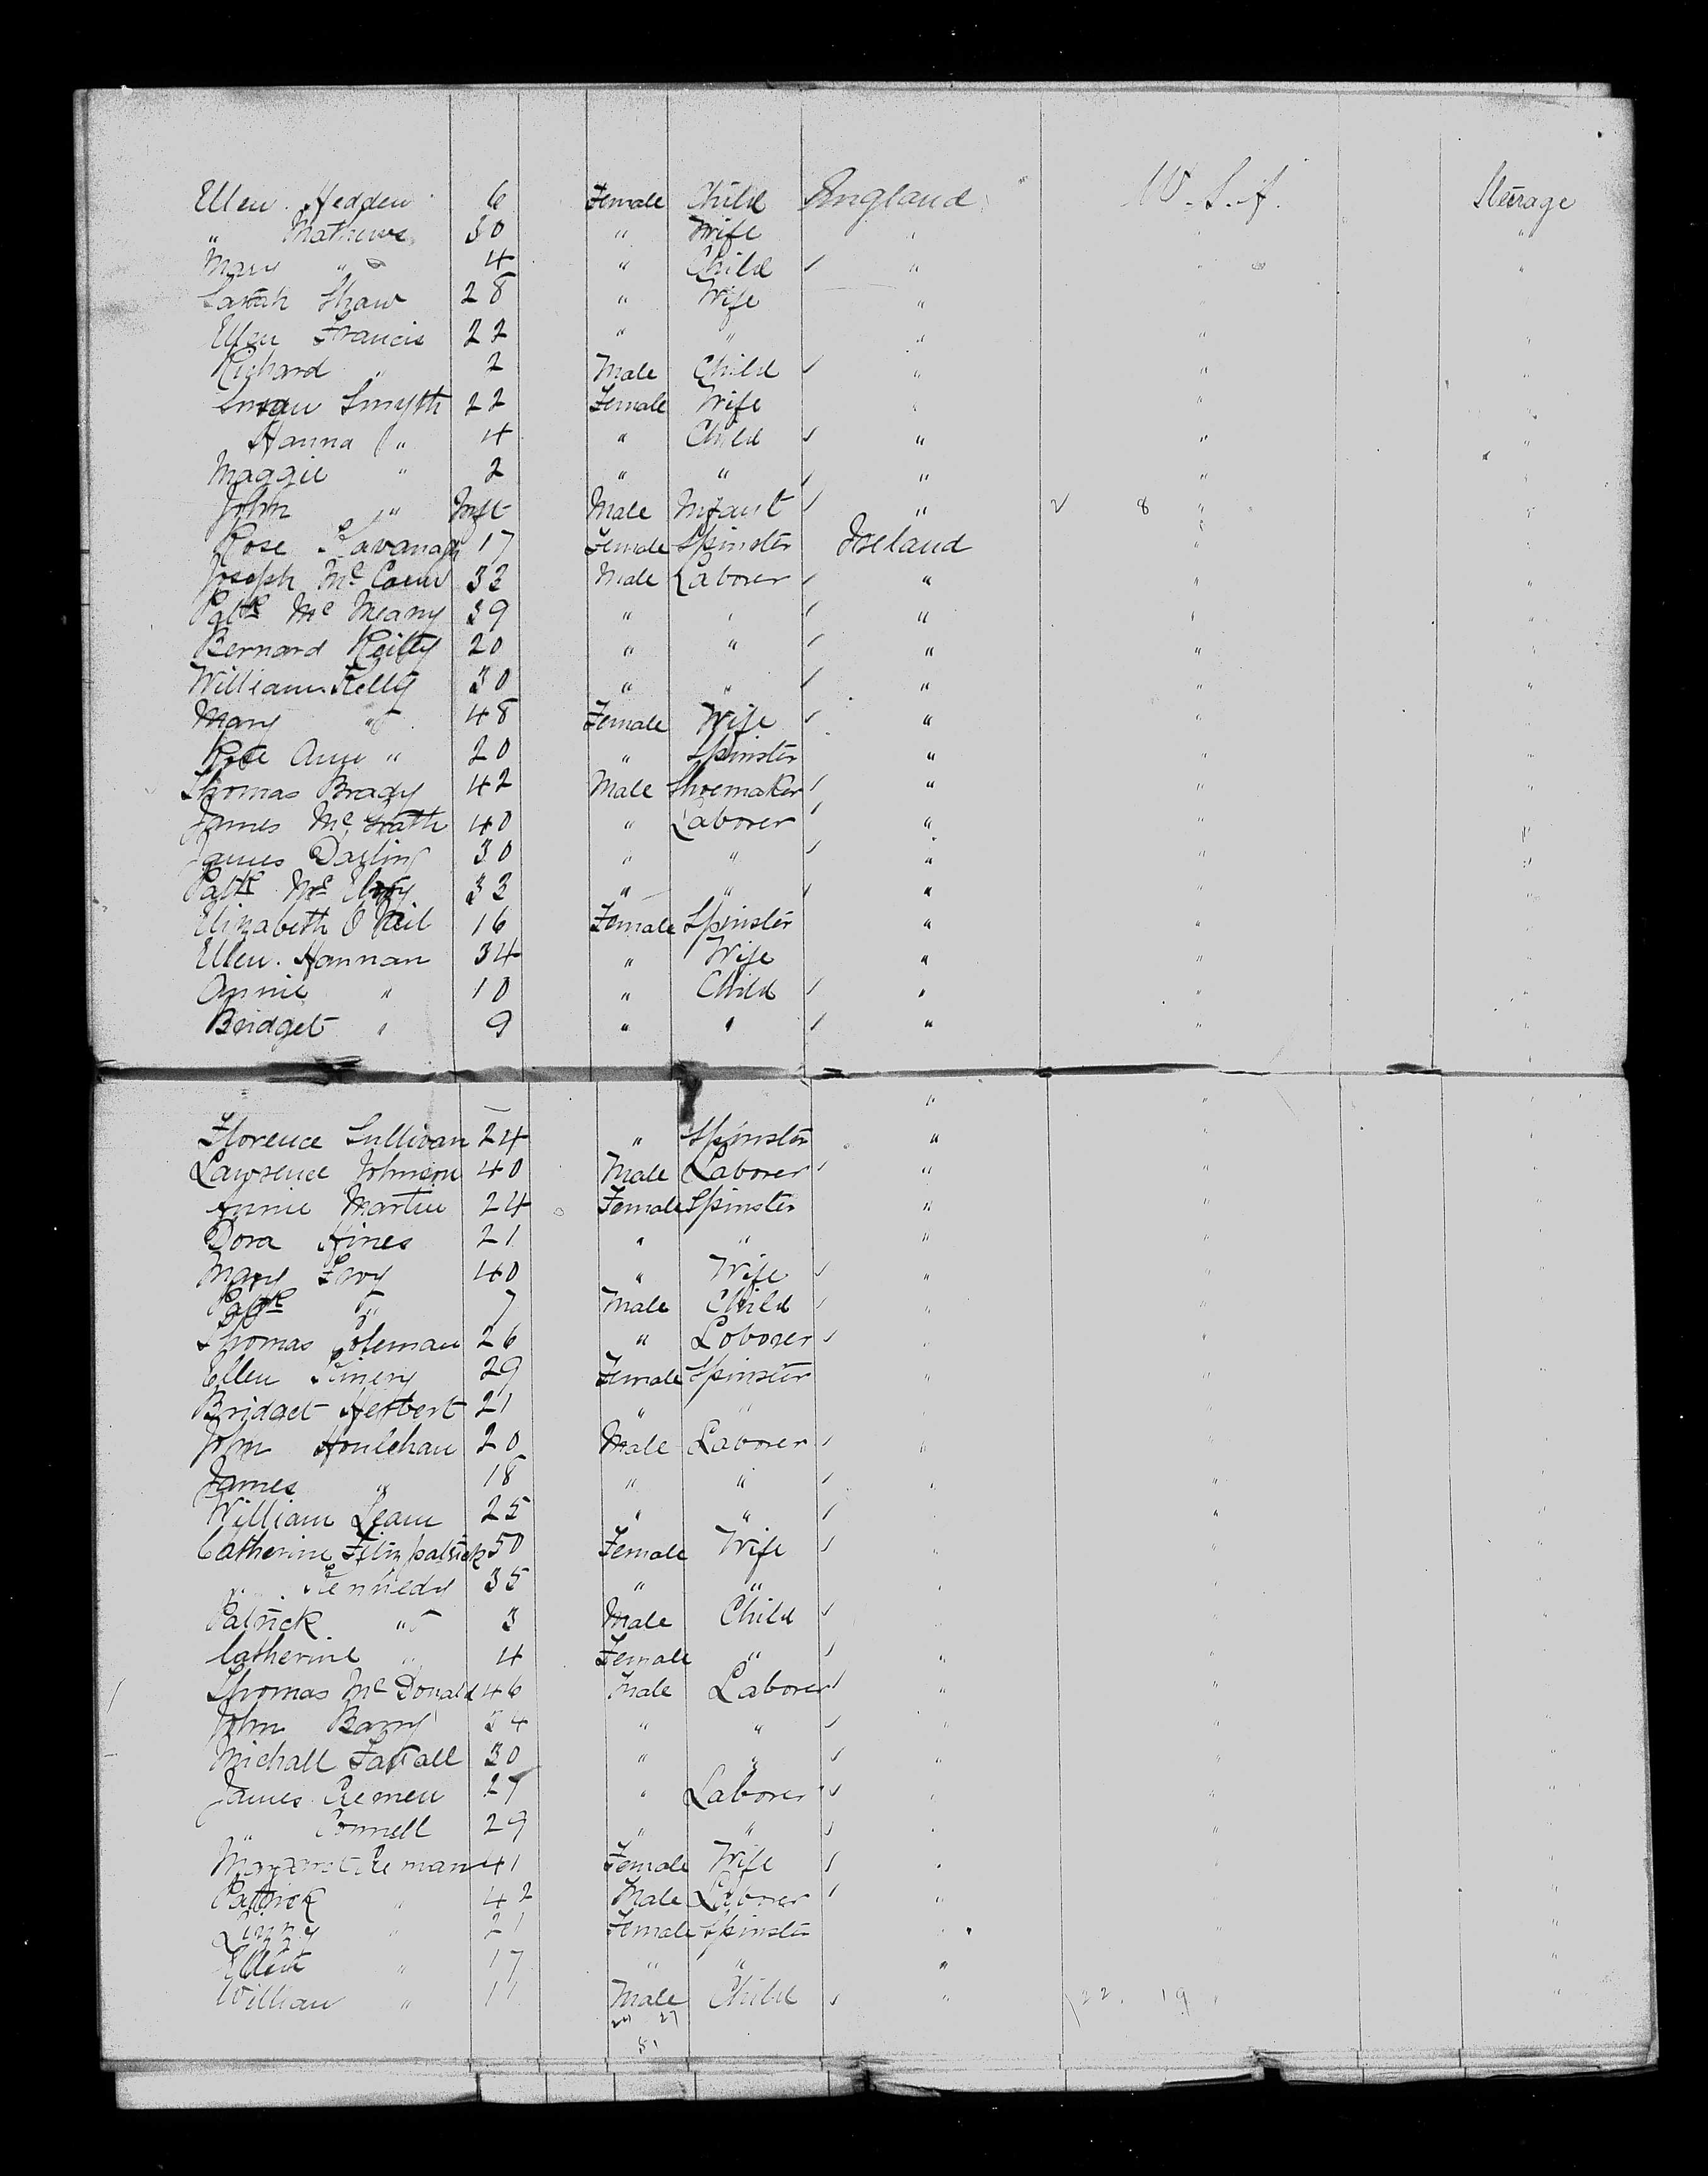 Ellen Hedden 6 Female Child England U.S.A. Steerage
" Mathews 30 " Wife " " "
Mary " 4 " Child " " "
Sarah Shaw 28 " Wife "
Ellen Francis 22 " " " " "
Richard " 2 Male Child " " "
Susan Smyth 22 Female Wife " " "
Hanna " 4 " Child " " "
Maggie " 2 " " " "
John " Inft Male Infant " 8 " "
Rose Kavanagh 17 Female Spinster Ireland " "
Joseph Mc 33 Male Laborer " " "
Patk Mc Meany 39 " " " " "
Bernard Reilly 20 " " " " "
William Kelly 30 " " " " "
Mary " 48 Female Wife " " "
Rose Ann " 20 " Spinster " " "
Thomas Brady 42 Male Shoemaker " " "
James Mc Grath 40 " Laborer " " "
James Darling 30 " " " " "
Patk Mc 33 " " " " "
Elizabeth O Neil 16 Female Spinster " " "
Ellen Hannan 34 " Wife " " "
Annie " 10 " Child " " "
Bridget " 9 " " " " "
" " "
Florence Sullivan 24 " Spinster " " "
Lawrence Johnson 40 Male Laborer " " "
Annie Martin 24 Female Spinster " " "
Dora Hines 21 " " " " "
Mary 40 " Wife " " "
Patk " 7 Male Child " " "
Thomas Coleman 26 " Loborer " " "
Ellen 29 Female Spinster " " "
Bridget Herbert 21 " " "
John Houlehan 20 Male Laborer " " "
James " 18 " " " " "
William 25 " " " "
Catherine Fitzpatrick 50 Female Wife " " "
" Kennedy 35 " " " "
Patrick " 3 Male Child " " "
Catherine " 4 Female " " "
Thomas Mc Donald 46 Male Laborer " " "
John Barry 34 " " " " "
Michall Farrall 30 " " " " "
James Cremen 27 " Laborer " " "
" Connell 29 " " " "
Margaret Creman 41 Female Wife " "
Patrick " 42 Male Laborer " "
Lizzy " 21 Female Spinster " " "
Ellen " 17 " " " "
William " 11 Male Child " 22. 19 "
24 27
51